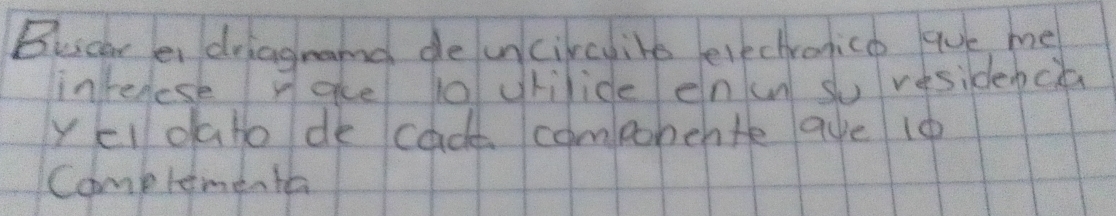 Buscar el driagrama de un circuito electronico que me
interese y que lo utilice en un su residencia
y el dato de cada componente que lo
complementa